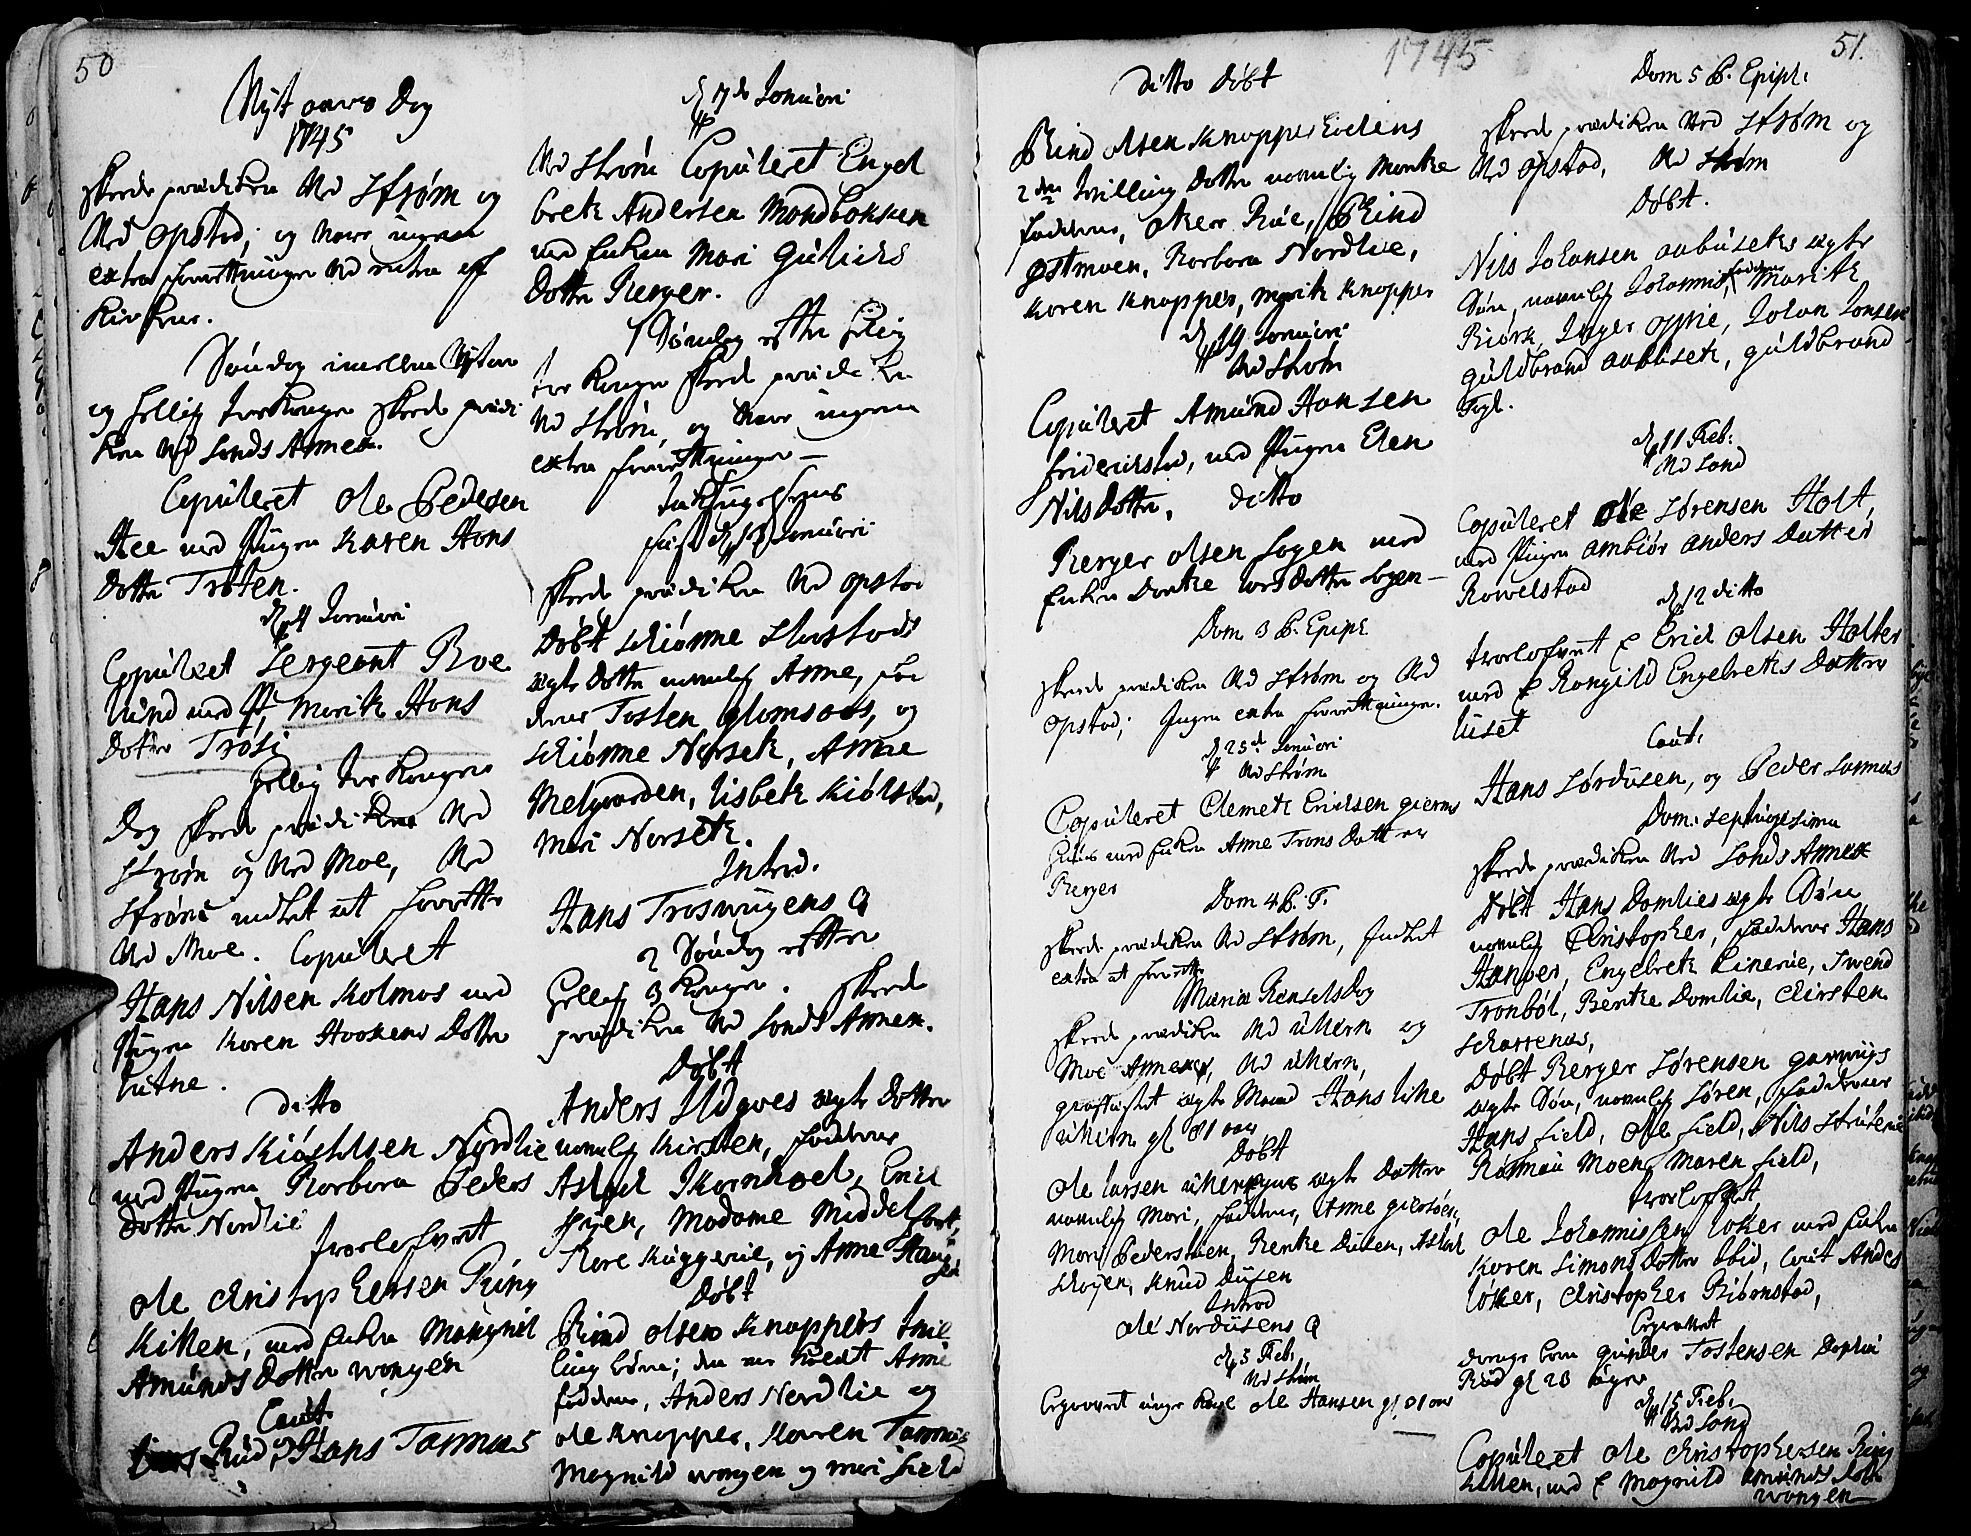 50
Nyt aars Dag
1745
skeede prædiken ved Strøm og
ved opstad; og vare ingen
extra forrettninger ved
Kirkene.
Søndag imellem Nytaar
og hellig tre Konger skeede prædi
ken ved Sands Annex.
Copuleret Ole Pedersen
Hee med Pigen Karen Hans
Dotter Trøten.
Januari
Copuleret Sergeant Roe
lund med P. Marith Hans
Dotter Trøsi
Hellig tre Konger
Dag skeede prædiken ved
Strøm og ved Moe, ved
Strøm indtet at forrette
ved Moe. Copuleret
Hans Nilsen Kolmos med
Pigen Karen Haakens Dotter
Lutne.
ditto
Anders Kiøstelsen Nordlie
med Pigen Barbara Peders
Dotter Nordlie
trorlofveet
Ole Christophersen Ring
Kilken, med Enken Mangnil
Amunds Dotter wongen
Caut.
Rud, og Hans Tarmus
d. 7de Januari
ved Strøm Copuleret Engel
breth Andersen Mondbakken
med Enken Mari Gulichs
Dotter Berger.
1 Søndag efter hellig
tre Konger skeede prædiken
ved Strøm, og vare ingen
extra forrettninger —
Januari
skeede prædiken ved opstad
Døbt Schiønne Starstads
ægte Dotter navnlig Anne, fad
dere Tosten glomsaas, og
Schiønne Norseth, Anne
Melgaarden, Lisbeth Kiølstad,
Mari Norseth.
Introd.
Hans Troswigens Q
2 Søndag efter
hellig 3 Konger. skeede
prædiken ved Sands Annex.
Døbt
Anders Ildgoes ægte Dotter
navnlig Kirsten, faddere
Astrid Kornhoel, Erich
Madame Middel
fart,
Kore Kuggerie, og Anne Haug
Døbt
Rind Olsen Knappers tvil
ling børn; den Anne
faddere, Anders Nordlie og
Ole Knopper, Karen Tarmus
Magnild wongen og Mari field
1745
51.
ditto døbt
Rind Olsen Knapper
2den tvilling Dotter navnlig Marthe
faddere, Rind
Østmoen, Barbora Nordlie,
Karen Knapper, Marith Knapper
d. 19 Januari
ved Strøm
Copuleret Amund Hansen
Friderichstad, med Pigen Elen
Nils Dotter. ditto
Berger Olsen Sagen med
Enken Dorthe Lars Dotter Sagen —
Dom 3 P. Epiph
skeede prædiken ved Strøm og ved
Opstad; Ingen extra forrettninger.
d. 25de Januari
ved Strøm
Copuleret Clemeth Erichsen gierms
huus med Enken Anne Trons Datter
Berger
Dom 4 P. T.
skeede prædiken ved Strøm, Indtet
extra at forrette
Mariæ Renselsdag
skeede prædiken ved Ulkern og
Moe Annexer, ved Ulkern,
graffæstet ægte Mand Hans
Ulkern gl 81 aar
Døbt
Ole Larsen ægte Datter
navnlig Mari, faddere, Anne
Mari Pedersbøen, Berthe Dusen, Astrid
Schøyen, Knud Dusen
Introd
Ole Nordusens Q
d. 5 Feb.
ved Strøm
Begravet unge Karl Ole Hansen gl 21 aar
Dom 5 P. Epiph.
skeede prædiken ved Strøm og
ved opstad, ved Strøm
Døbt.
Nils Johansen aabuseths ægte
Søn, navnlig Johannis, faddere Marith
Biørk, Inger Opsie, Johan Jonsen
Guldbrand aabuseth, guldbrand
Fogl.
d. 11 Feb:
ved Sand
Copuleret Ole Sørensen Holt,
med Pigen Ambiør Anders Datter
Rowelstad
d. 12 ditto
trorlofvet E Erich Olsen Holter
med E Rongild Engelbreths Datter
liset
Caut.
Hans Sørdusen, og Peder Larmus
Dom: Septuagesima
skeede prædiken ved Sands Annex
Døbt Hans Domlies ægte Søn
navnlig Christopher, faddere Hans
Hanper, Engelbreth Linerue, Twend
Tronbøl, Berthe Domlie, Chirsten
Scharrenus,
Døbt Berger Sørensen garwiigs
ægte Søn, navnlig Søren, faddere
Hans field, Ole field, Nils Struterud
Rasmus Moen, Maren field,
trorlofvet
Ole Johannissen loker med Enken
Karen Simons Dotter ibid, Caut Anders
løkker, Christopher Biørnstad,
Begravet
drenge barn gunder Tostensen Doplie
Rud gl 23 uger
d. 15 Feb.
ved Sand
Copuleret Ole Christophersen Ring
kilken, med E Magnild Amunds Dotter
wongen